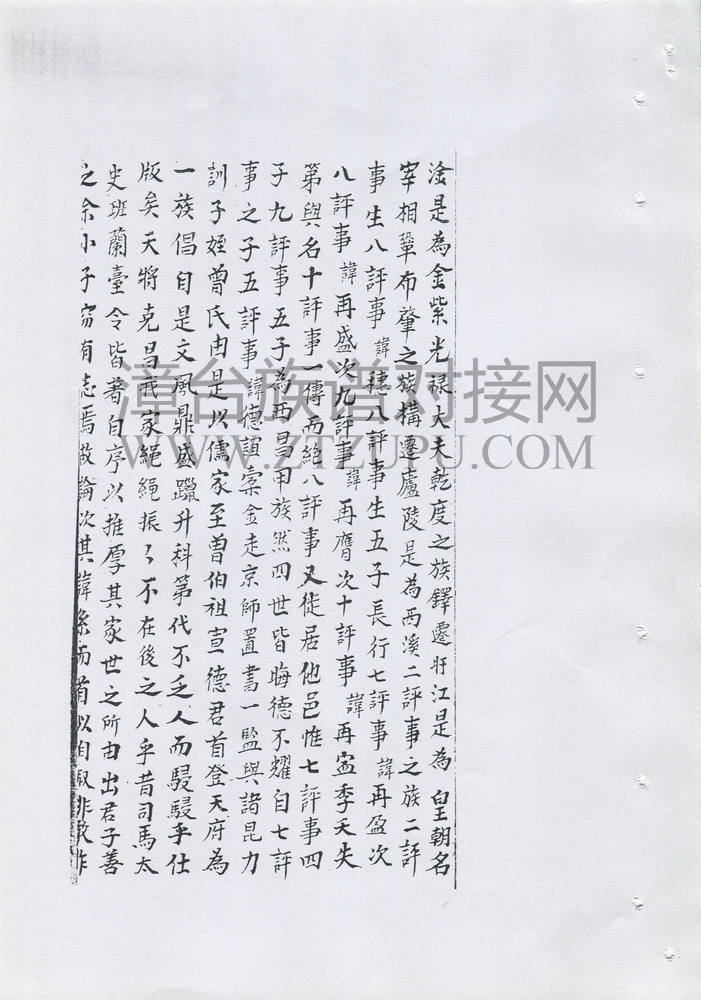 淦是為金紫光禄大夫乾度之族鐸遷旴江是為皇朝名
宰相鞏布肇之族構遷廬陵是為西溪二評事之族二評
事生八評事諱穗八評事生五子長行七評事諱再盈次
八評事諱再盛次九評事諱再膺次十評事諱再寍季夭失
第與名十評事一傳而絕八評事又徙居他邑惟七評事四
子九評事五子為西昌甲族然四世皆晦德不耀自七評
事之子五評事諱德誼槖金走京師置書一監與諸昆力
訓子姪曾氏由是以儒家至曾伯祖宣德君首登天府為
一族倡自是文風鼎盛躐升科第代不乏人而駸駸乎仕
版矣天將克昌我家繩繩振々不在後之人乎昔司馬太
史班蘭臺令皆著自序以推厚其家世之所由出君子善
之余小子窃有志焉故論次其諱系而首以自叙非敢作
漳台族谱对接网
WWW.ZTZUPU.COM